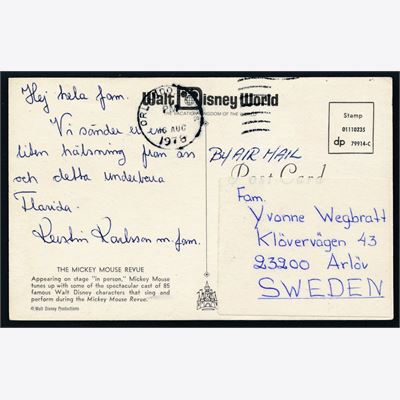 Hej hela fam.
Vi sänder en
liten hälsning från oss
och detta underbara
Florida.
Kerstin Karlsson m. fam.
THE MICKEY MOUSE REVUE
Appearing on stage "in person," Mickey Mouse
tunes up with some of the spectacular cast of 85
famous Walt Disney characters that sing and
perform during the Mickey Mouse Revue.
© Walt Disney Productions
Walt Disney World
THE VACATION KINGDOM OF THE WORLD
ORLANDO
PM
06 AUG
1978
Stamp
01110235
dp 79914-C
BY AIR MAIL
Post Card
Fam.
Yvonne Wegbratt
Klövervägen 43
23200 Arlöv
SWEDEN